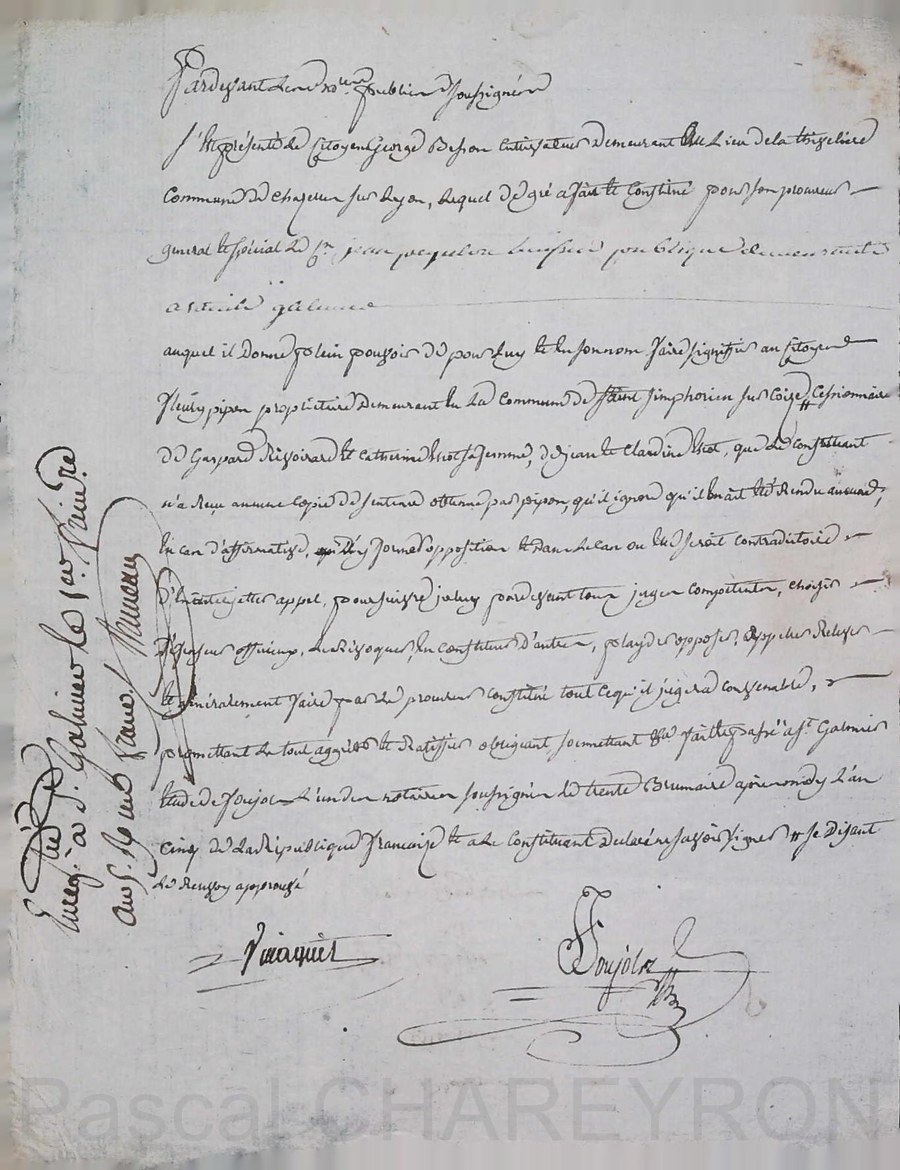 Pardevant les no.res publics soussignés
S'est présenté le Citoyen George Besson cultivateur demeurant au Lieu de la
Commune de Chazelles sur Lyon, lequel de gré a fait et constitué pour son procureur
general et spécial le C.en jean huissier publique demeurant
a ville galmier
auquel il donne plein pouvoir de pour luy et en son nom faire signiffier au Citoyen
fleury pipon propriétaire demeurant en la Commune de Saint simphorien sur Coize, # Cessionnaire
de Gaspard Rivoirard et Catherine sa femme, de jean et Clardine que le constituant
n'a Reçu aucune Copie de sentence obtenue par pipon, qu'il ignore qu'il en ait été Rendu aucune,
En cas d'affirmative, former opposition et dans le cas ou elle seroit contradictoire
d'en interjetter appel, poursuivre jceluy pardevant tous juges competents, choisir
deffenseur officieux, les Révoquer, en constituer d'autres, playder opposer, appeller Relever
et généralement faire par le procureur constitué tout ce qu'il jugera convenable,
promettant le tout aggréer et Ratiffier obligeant, soumettant fait et passé a S.t Galmier
etude de Poujol L'un des notaires soussignés le trente Brumaire après midy L'an
Cinq de la République française et a le Constituant déclaré ne savoir signer # se disant
Le Renvoy approuvé
Poujol
Enreg. à S. Galmier le 1er frimaire
an 5.